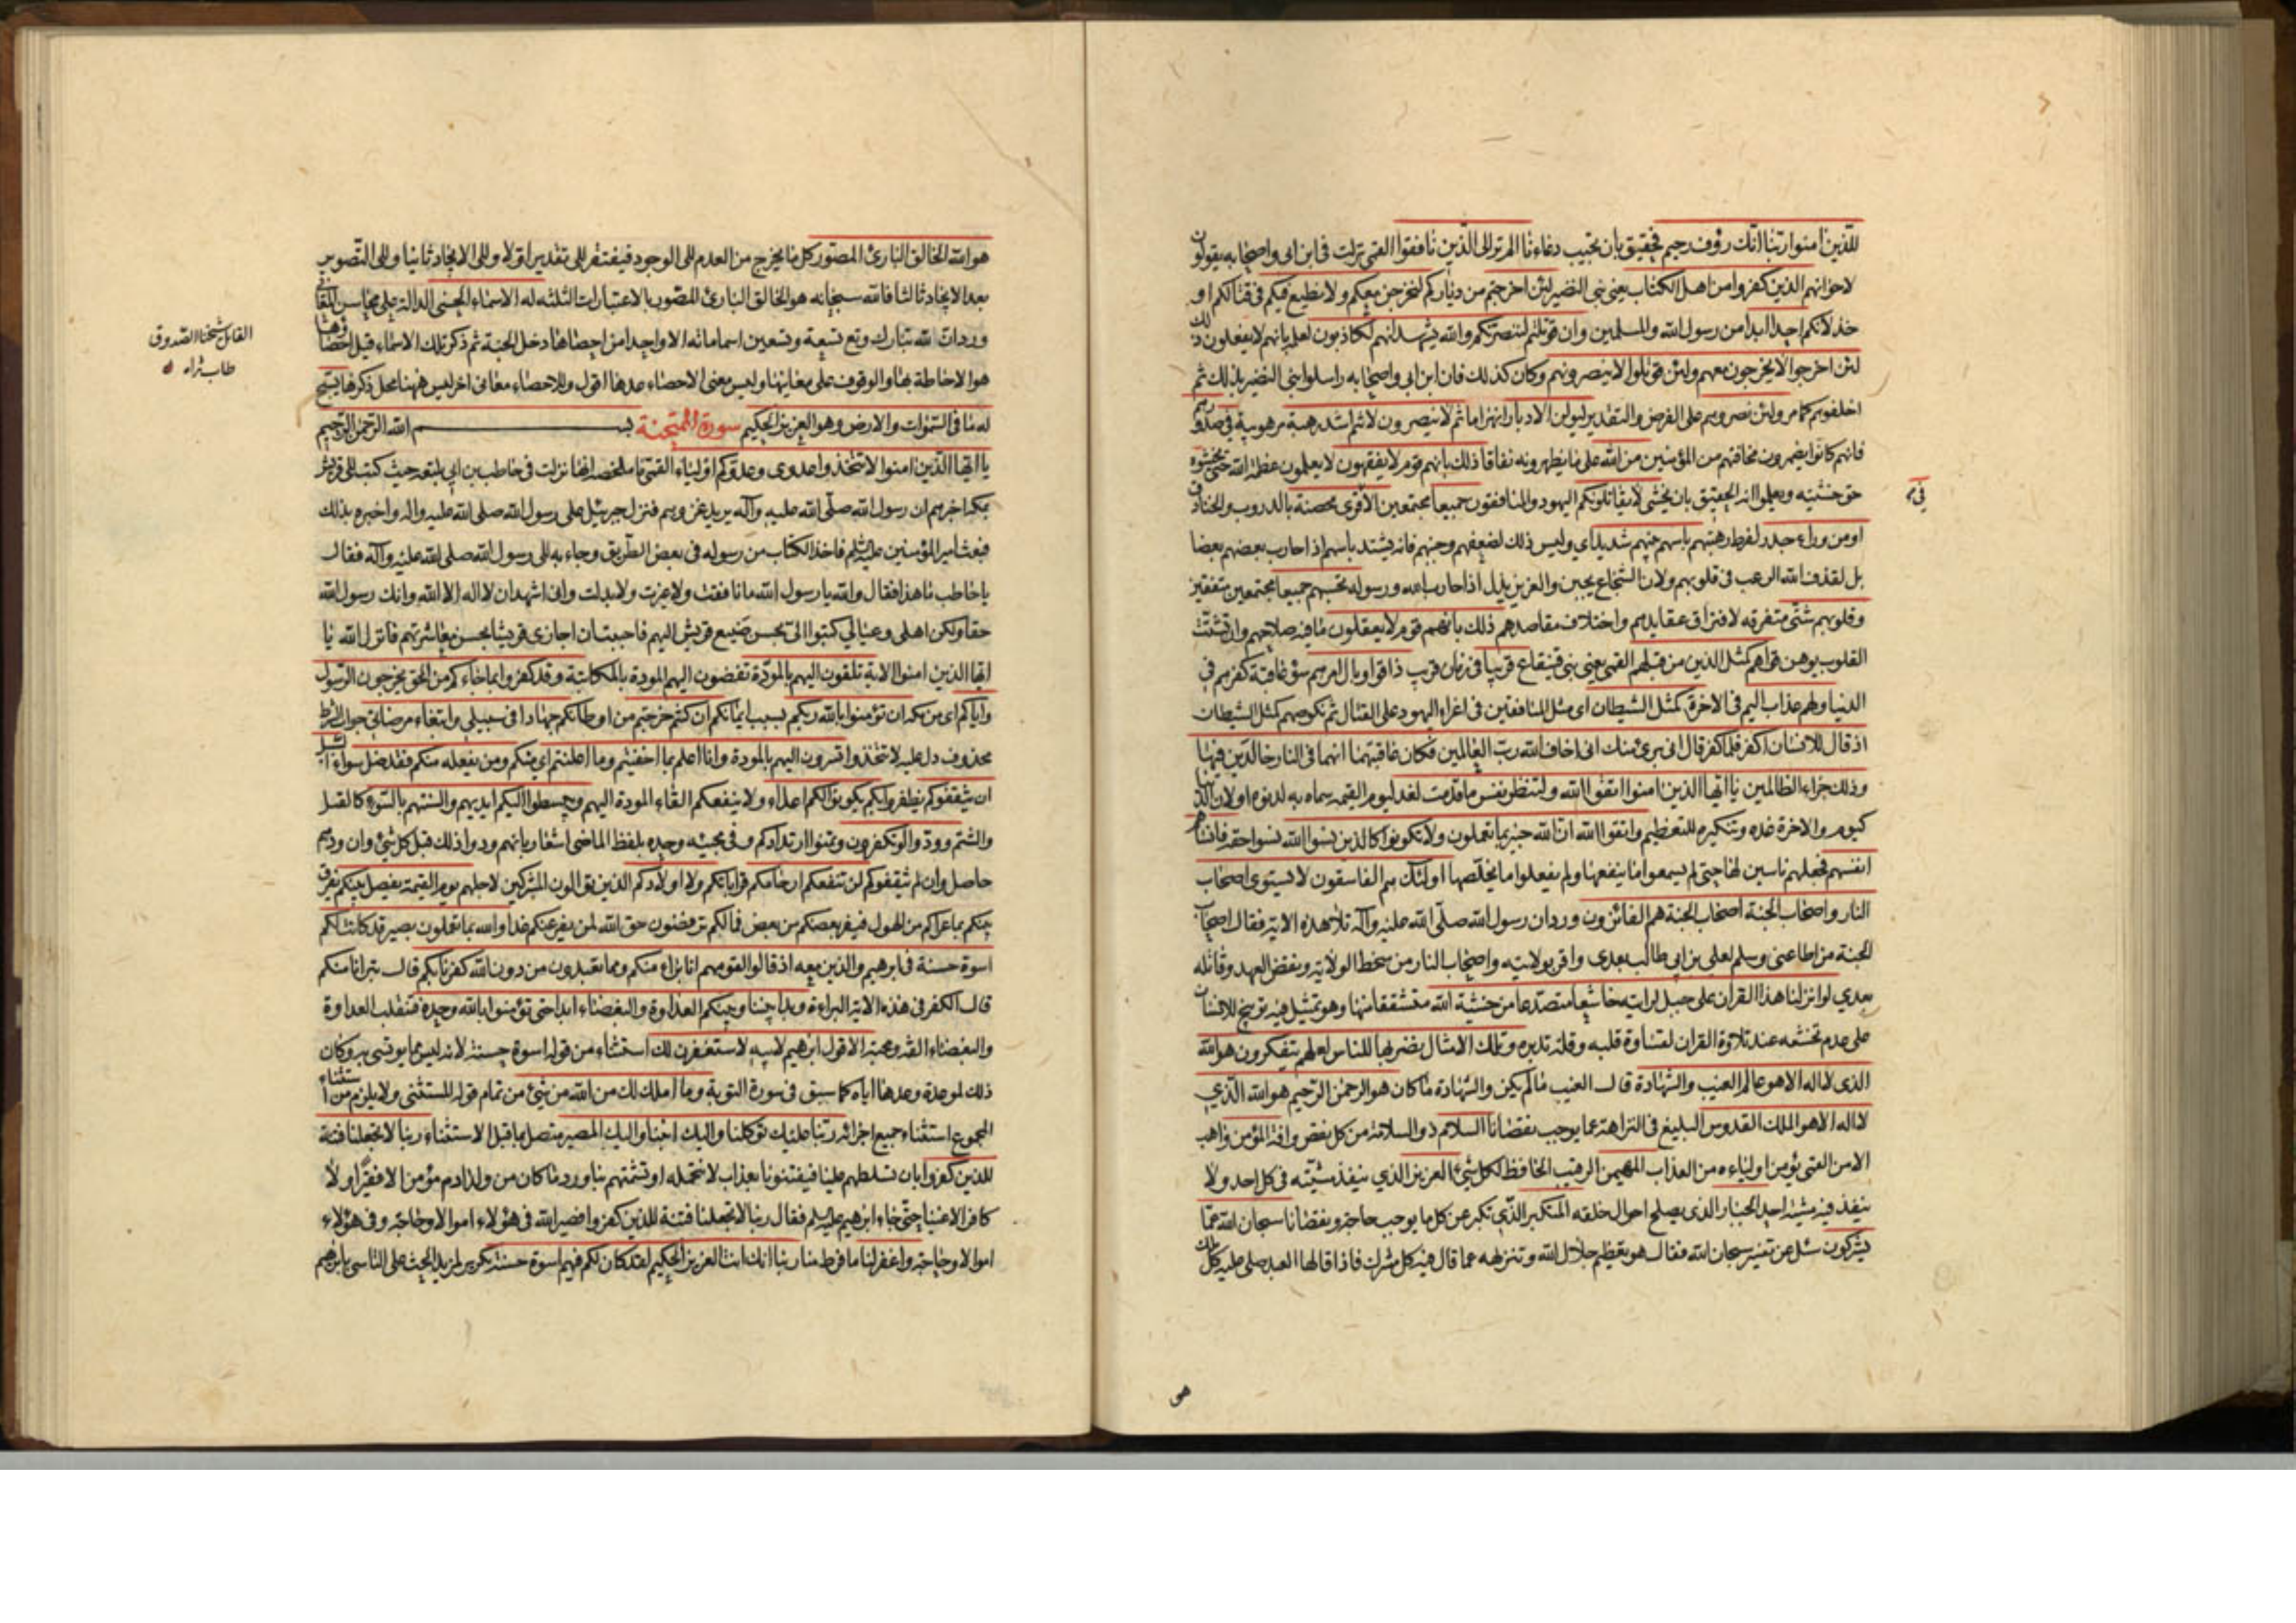 للذين امنوا ربنا انك رؤف رحيم فحقيق بان تجيب دعاءنا الم تر الى الذين نافقوا القمي نزلت في ابن ابي واصحابه يقولون
لاخوانهم الذين كفروا من اهل الكتاب يعني بني النضير لئن اخرجتم من دياركم لنخرجن معكم ولا نطيع فيكم في قتالكم او
خذلانكم احدا ابدا من رسول الله والمسلمين وان قوتلتم لننصرنكم والله يشهد انهم لكاذبون لعلمه بانهم لا يفعلون ذلك
لئن اخرجوا لا يخرجون معهم ولئن قوتلوا لا ينصرونهم وكان كذلك فان ابن ابي واصحابه راسلوا بني النضير بذلك ثم
اخلفوهم كما مر ولئن نصروهم على الفرض والتقدير ليولن الادبار انهزاما ثم لا ينصرون لانتم اشد رهبة مرهوبية في صدورهم
فانهم كانوا يضمرون مخافتهم من المؤمنين من الله على ما يظهرونه نفاقا ذلك بانهم قوم لا يفقهون لا يعلمون عظمة الله حتى يخشوه
في
حق خشيته ويعلموا انه الحقيق بان يخشى لا يقاتلونكم اليهود والمنافقون جميعا مجتمعين الا في قرى محصنة بالدروب والخنادق
او من وراء جدر لفرط رهبتهم باسهم بينهم شديد اي وليس ذلك لضعفهم وجبنهم فانه يشتد باسهم اذا حارب بعضهم بعضا
بل لقذف الله الرعب في قلوبهم ولان الشجاع يجبن والعزيز يذل اذا حارب الله ورسوله تحسبهم جميعا مجتمعين متفقين
وقلوبهم شتى متفرقه لافتراق عقايدهم واختلاف مقاصدهم ذلك بانهم قوم لا يعقلون ما فيه صلاحهم وان تشتت
القلوب يوهن قواهم كمثل الذين من قبلهم القمي يعني بني قينقاع قريبا في زمان قريب ذاقوا وبال امرهم سوء عاقبة كفرهم في
الدنيا ولهم عذاب اليم في الاخرة كمثل الشيطان اي مثل المنافقين في اغراء اليهود على القتال ثم نكوصهم كمثل الشيطان
اذ قال للانسان اكفر فلما كفر قال اني بريء منك اني اخاف الله رب العالمين فكان عاقبتهما انهما في النار خالدين فيها
وذلك جزاء الظالمين يا ايها الذين امنوا اتقوا الله ولتنظر نفس ما قدمت لغد ليوم القيمه سماه به لدنوه او لان الدنيا
كيوم والاخرة غده وتنكيره للتعظيم واتقوا الله ان الله خبير بما تعملون ولا تكونوا كالذين نسوا الله نسوا حقه فانساهم
انفسهم فجعلهم ناسين لها حتى لم يسمعوا ما ينفعها ولم يفعلوا ما يخلصها اولئك هم الفاسقون لا يستوي اصحاب
النار واصحاب الجنة اصحاب الجنة هم الفائزون ورد ان رسول الله صلى الله عليه وآله تلا هذه الاية فقال اصحاب
الجنة من اطاعني وسلم لعلي بن ابي طالب بعدي واقر بولايته واصحاب النار من سخط الولاية ونقض العهد وقاتله
بعدي لو انزلنا هذا القران على جبل لرايته خاشعا متصدعا من خشية الله متشققا منها وهو تمثيل فيه توبيخ للانسان
على عدم تخشعه عند تلاوة القران لقساوة قلبه وقلة تدبره وتلك الامثال نضربها للناس لعلهم يتفكرون هو الله
الذي لا اله الا هو عالم الغيب والشهادة قال الغيب ما لم يكن والشهادة ما كان هو الرحمن الرحيم هو الله الذي
لا اله الا هو الملك القدوس البليغ في النزاهة عما يوجب نقصانا السلام ذو السلامة من كل نقص وافة المؤمن واهب
الامن القمي يؤمن اولياءه من العذاب المهيمن الرقيب الحافظ لكل شيء العزيز الذي ينفذ مشيته في كل احد ولا
ينفذ فيه مشية احد الجبار الذي يصلح احوال خلقه المتكبر الذي تكبر عن كل ما يوجب حاجة ونقصانا سبحان الله عما
يشركون سئل عن تفسير سبحان الله فقال هو تعظيم جلال الله وتنزيهه عما قال فيه كل مشرك فاذا قالها العبد صلى عليه كل ملك
هو
هو الله الخالق البارئ المصور كل ما يخرج من العدم الى الوجود فيفتقر الى تقدير اولا والى الايجاد ثانيا والى التصوير
بعد الايجاد ثالثا فالله سبحانه هو الخالق البارئ المصور بالاعتبارات الثلثه له الاسماء الحسنى الدالة على محاسن المعاني
ورد ان لله تبارك وتع تسعة وتسعين اسما مائه الا واحدا من احصاها دخل الجنة ثم ذكر تلك الاسماء قيل احصاؤها
القائل شيخنا الصدوق
طاب ثراه
هو الاحاطة بها والوقوف على معانيها وليس معنى الاحصاء عدها اقول وللاحصاء معاني اخر ليس ههنا محل ذكرها يسبح
له ما في السموات والارض وهو العزيز الحكيم سورة الممتحنة بسم الله الرحمن الرحيم
يا ايها الذين امنوا لا تتخذوا عدوي وعدوكم اولياء القمي ما ملخصه انها نزلت في حاطب بن ابي بلتعه حيث كتب الى قريش
بمكة اخبرهم ان رسول الله صلى الله عليه وآله يريد غزوهم فنزل جبرئيل على رسول الله صلى الله عليه واله واخبره بذلك
فبعث امير المؤمنين عليه السلم فاخذ الكتاب من رسوله في بعض الطريق وجاء به الى رسول الله صلى الله عليه وآله فقال
يا حاطب ما هذا فقال والله يا رسول الله ما نافقت ولا غيرت ولا بدلت واني اشهد ان لا اله الا الله وانك رسول الله
حقا ولكن اهلي وعيالي كتبوا الي بحسن صنيع قريش اليهم فاحببت ان اجازي قريشا بحسن معاشرتهم فانزل الله يا
ايها الذين امنوا الاية تلقون اليهم بالمودة تفضون اليهم المودة بالمكاتبة وقد كفروا بما جاءكم من الحق يخرجون الرسول
واياكم اي من مكه ان تؤمنوا بالله ربكم بسبب ايمانكم ان كنتم خرجتم من اوطانكم جهادا في سبيلي وابتغاء مرضاتي جواب الشرط
محذوف دل عليه لا تتخذوا تسرون اليهم بالمودة وانا اعلم بما اخفيتم وما اعلنتم اي منكم ومن يفعله منكم فقد ضل سواء السبيل
ان يثقفوكم يظفروا بكم يكونوا لكم اعداء ولا ينفعكم القاء المودة اليهم ويبسطوا اليكم ايديهم والسنتهم بالسوء كالقتل
والشتم وودوا لو تكفرون وتمنوا ارتدادكم وفي مجيئه وحده بلفظ الماضي اشعار بانهم ودوا ذلك قبل كل شيء وان ودهم
حاصل وان لم يثقفوكم لن تنفعكم ارحامكم قراباتكم ولا اولادكم الذين توالون المشركين لاجلهم يوم القيمة يفصل بينكم يفرق
بينكم بما عراكم من الهول فيفر بعضكم من بعض فما لكم ترفضون حق الله لمن يفر عنكم غدا والله بما تعملون بصير قد كانت لكم
اسوة حسنة في ابرهيم والذين معه اذ قالوا لقومهم انا براء منكم ومما تعبدون من دون الله كفرنا بكم قال تبرانا منكم
قال الكفر في هذه الاية البراءة وبدا بيننا وبينكم العداوة والبغضاء ابدا حتى تؤمنوا بالله وحده فتنقلب العداوة
والبغضاء الفة ومحبة الا قول ابرهيم لابيه لاستغفرن لك استثناء من قوله اسوة حسنة لانه ليس مما يوتسى به وكان
ذلك لموعدة وعدها اياه كما سبق في سورة التوبة وما املك لك من الله من شيء من تمام قوله المستثنى ولا يلزم من استثناء
المجموع استثناء جميع اجزائه ربنا عليك توكلنا واليك انبنا واليك المصير متصل بما قبل الاستثناء ربنا لا تجعلنا فتنة
للذين كفروا بان تسلطهم علينا فيفتنونا بعذاب لا نتحمله او تشمتهم بنا ورد ما كان من ولد ادم مؤمن الا فقيرا ولا
كافر الا غنيا حتى جاء ابرهيم عليه السلم فقال ربنا لا تجعلنا فتنة للذين كفروا فصير الله في هؤلاء اموالا وحاجة وفي هؤلاء
اموالا وحاجة واغفر لنا ما فرط منا ربنا انك انت العزيز الحكيم لقد كان لكم فيهم اسوة حسنة تكرير لمزيد الحث على التاسي بابرهيم